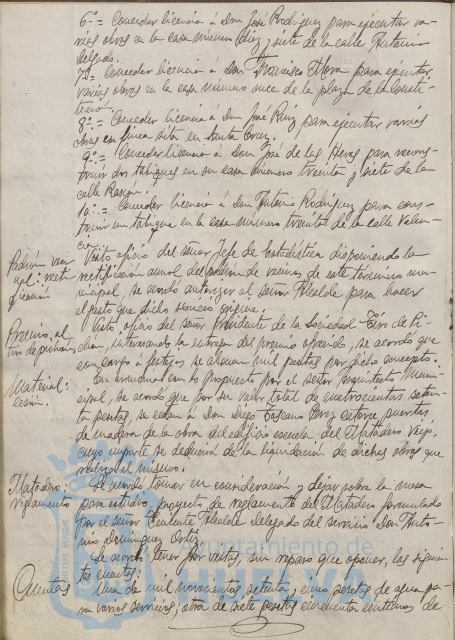 6º = Conceder licencia á Don José Rodríguez para ejecutar va-
rias obras en la casa número diez y siete de la calle Antonio
delgado.
7º = Conceder licencia á Don Francisco Mora para ejecutar
varias obras en la casa número once de la plaza de la Consti-
tución.
8º = Conceder licencia á don José Ruiz para ejecutar varias
obras en finca sita en Santa Cruz.
9º = Conceder licencia á Don José de las Heras para recons-
truir dos tabiques en su casa número treinta y siete de la
calle Rascon.
10º = Conceder licencia á Don Antonio Rodríguez para cons-
truir un tabique en la casa número treinta de la calle Valen-
cia.
Padrón veci-
nal: recti-
ficación
Visto oficio del señor Jefe de Estadística disponiendo la
rectificación anual del padrón de vecinos de este término mu-
nicipal, se acordó autorizar al señor Alcalde para hacer
el gasto que dicho servicio origine.
Premio al
tiro de pichón
Visto oficio del señor Presidente de la Sociedad Tiro de Pi-
chón, interesando la entrega del premio ofrecido, se acordo que
con cargo á festejos se abonen mil pesetas por dicho concepto.
Material:
cesión.
En armonía con lo propuesto por el señor Arquitecto Muni-
cipal, se acordo que por su valor total de cuatrocientas seten-
ta pesetas, se cedan á Don Diego Toscano Perez catorce puertas
de madera de la obra del edificio escuela del Matadero Viejo,
cuyo importe se deducirá de la liquidación de dichas obras que
realizó el mismo.
Matadero:
reglamento
Se acordo tomar en consideración y dejar sobre la mesa
para estudio, proyecto de reglamento del Matadero formulado
por el señor Teniente Alcalde delegado del servicio Don Anto-
nio Dominguez Ortiz.
Se acordo tener por vistas, sin reparo que oponer, las siguien-
tes cuentas:
Cuentas
Una de mil novecientas setenta y cinco pesetas de agua pa-
ra varios servicios; otra de siete pesetas cincuenta centimos de
Ayuntamiento de
HUELVA